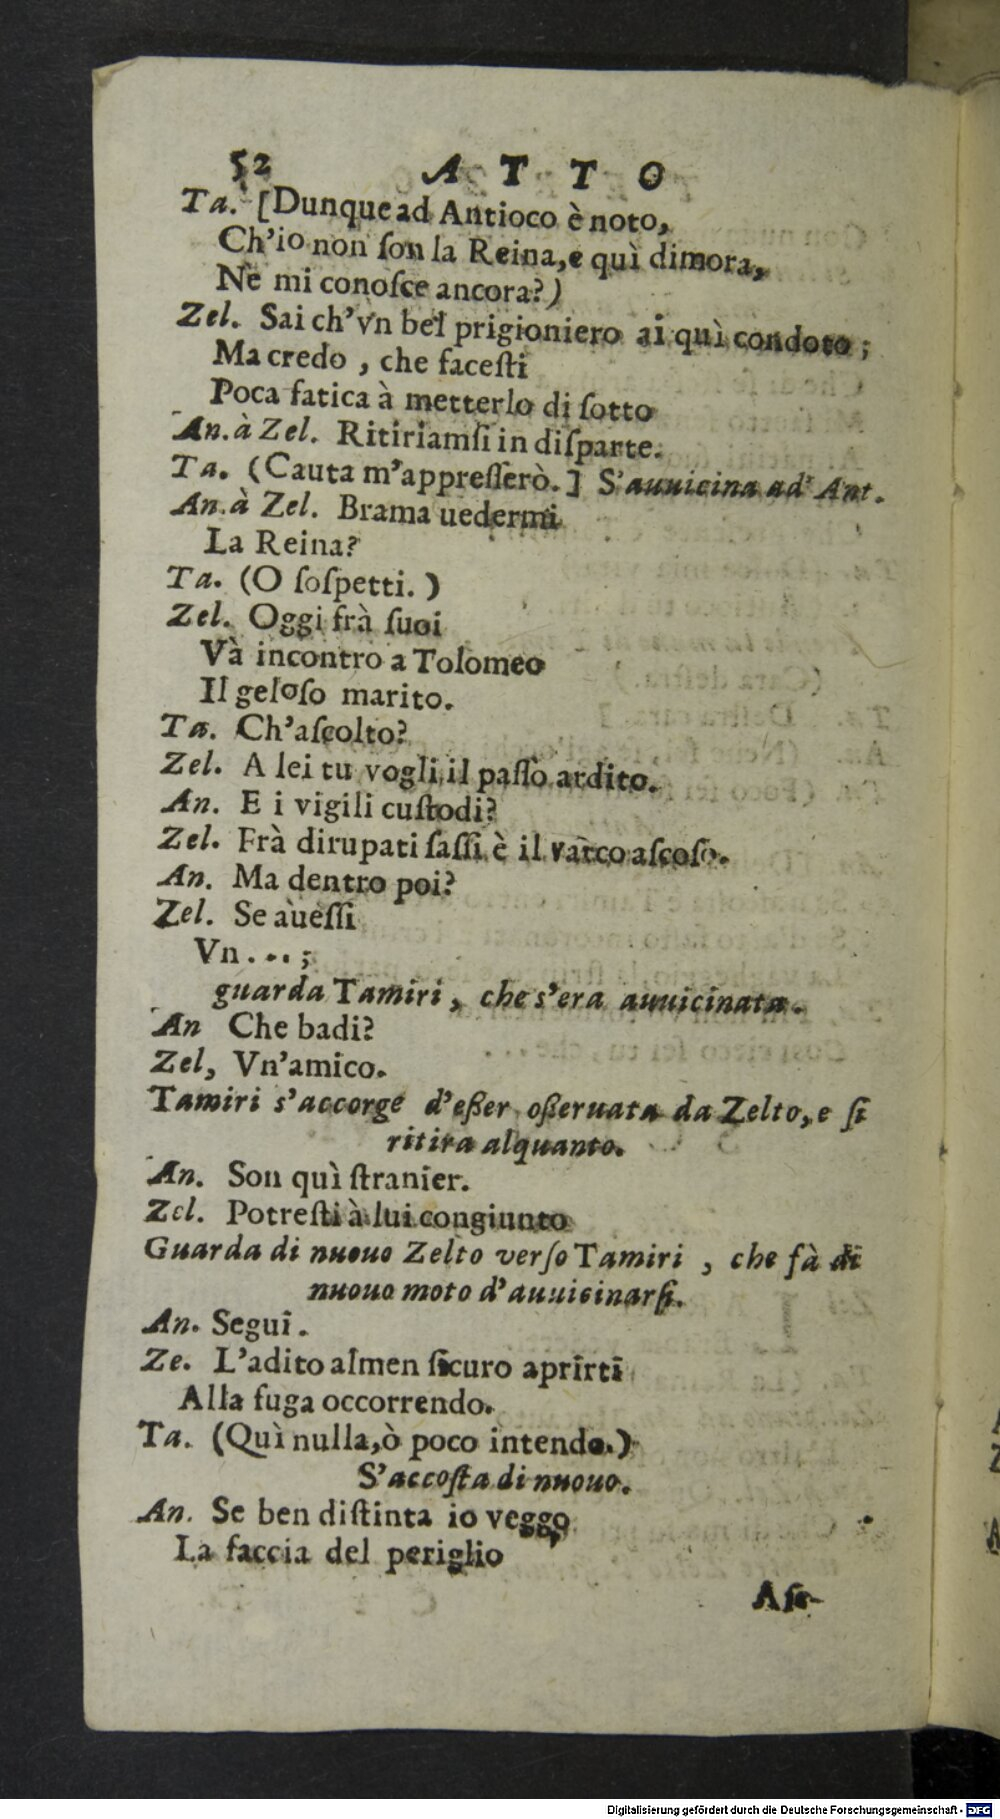 52 ATTO
Ta. [Dunque ad Antioco è noto,
Ch'io non ſon la Reina, e quì dimora,
Ne mi conoſce ancora?)
Zel. Sai ch'vn bel prigioniero ai quì condoto;
Ma credo, che faceſti
Poca fatica à metterlo di ſotto
An. à Zel. Ritiriamſi in diſparte.
Ta. (Cauta m'appreſſerò.] S'auuicina ad' Ant.
An. à Zel. Brama uedermi
La Reina?
Ta. (O ſoſpetti.)
Zel. Oggi frà ſuoi
Và incontro a Tolomeo
Il geloſo marito.
Ta. Ch'aſcolto?
Zel. A lei tu vogli il paſſo ardito.
An. E i vigili cuſtodi?
Zel. Frà dirupati ſaſſi è il varco aſcoſo.
An. Ma dentro poi?
Zel. Se aueſſi
Vn...;
guarda Tamiri, che s'era auuicinata.
An Che badi?
Zel, Vn'amico.
Tamiri s'accorge d'eßer oßeruata da Zelto, e ſi
ritira alquanto.
An. Son quì ſtranier.
Zel. Potreſti à lui congiunto
Guarda di nuouo Zelto verſo Tamiri, che fà di
nuouo moto d'auuicinarſi.
An. Segui.
Ze. L'adito almen ſicuro aprirti
Alla fuga occorrendo.
Ta. (Quì nulla, ò poco intendo.)
S'accoſta di nuouo.
An. Se ben diſtinta io veggo
La faccia del periglio
Aſe-
Digitalisierung gefördert durch die Deutsche Forschungsgemeinschaft - DFG